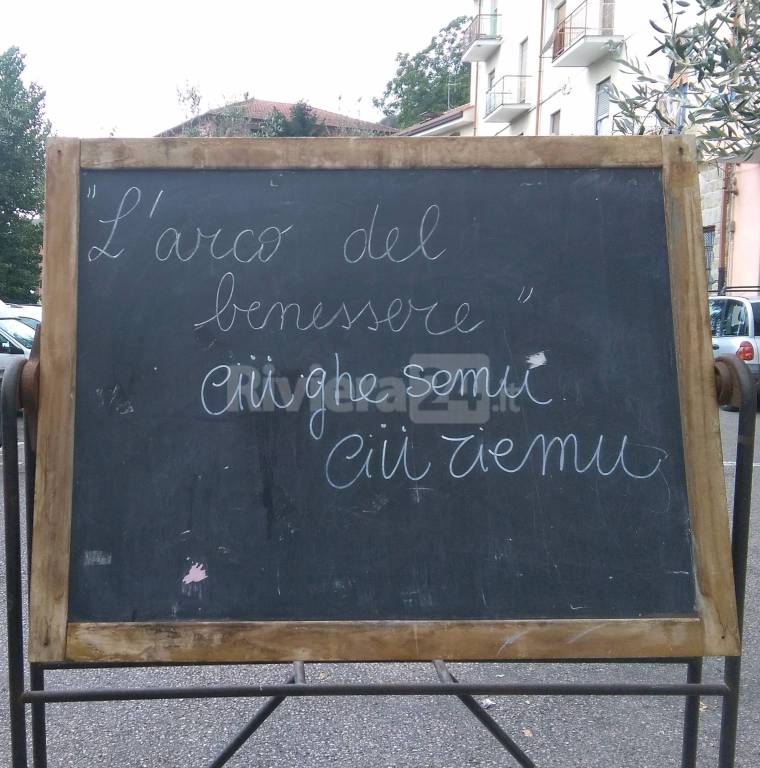 "L'arco del
benessere"
ciü ghe semu
ciü riemu
Riviera24.it